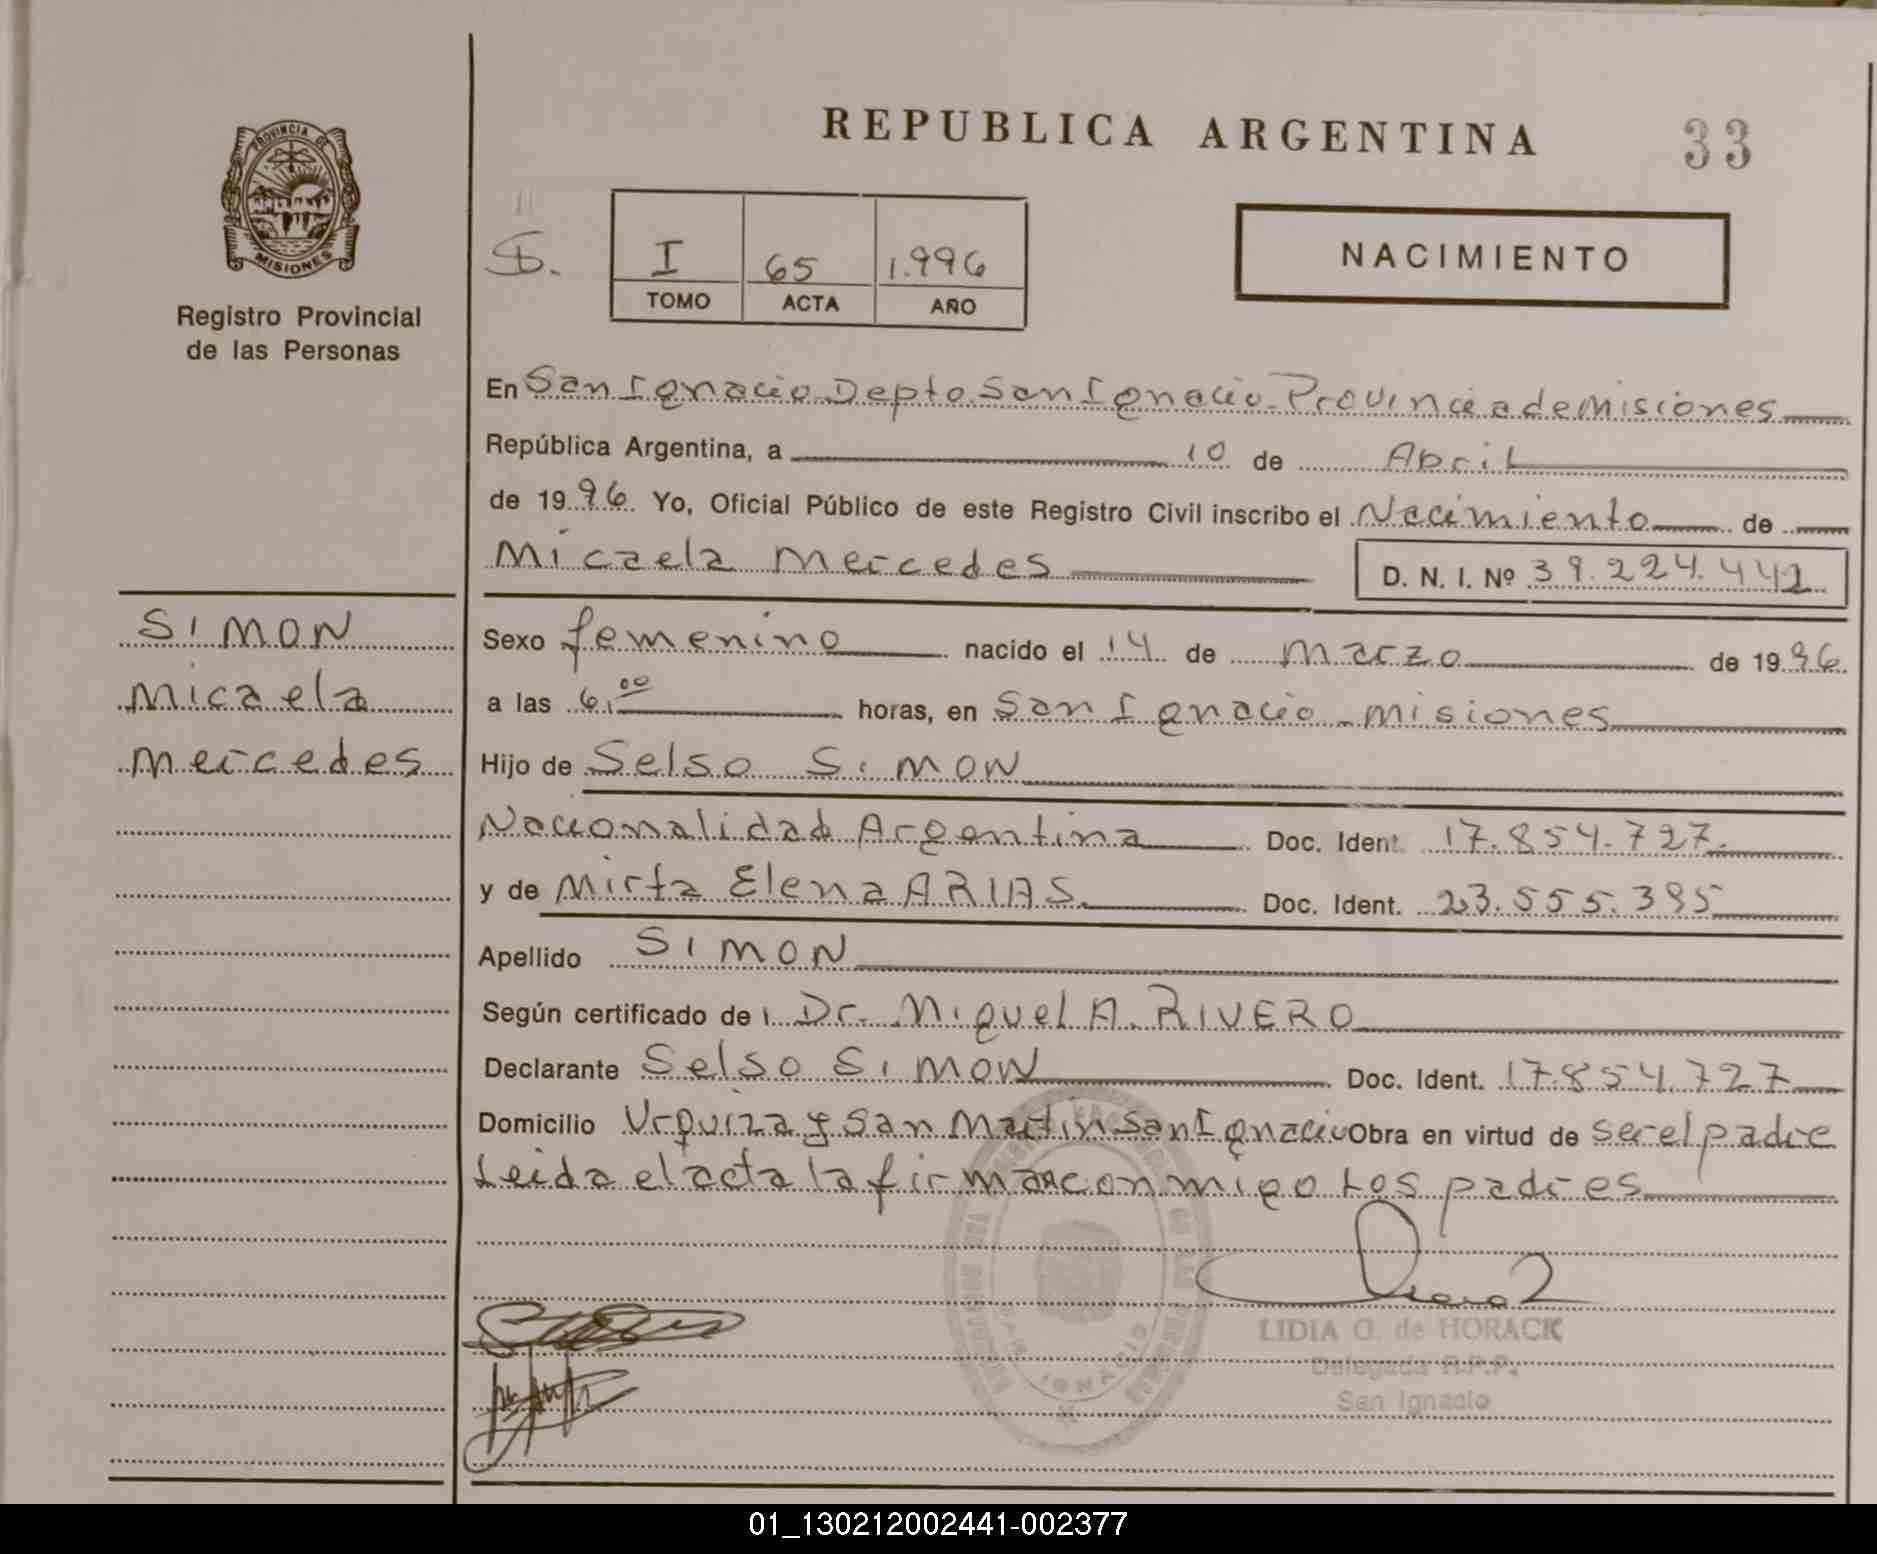 REPUBLICA ARGENTINA
33
PROVINCIA DE
MISIONES
Registro Provincial
de las Personas
I 65 1.996
TOMO ACTA AÑO
NACIMIENTO
En San Ignacio Depto San Ignacio - Provincia de Misiones
República Argentina, a 10 de Abril
de 1996 Yo, Oficial Público de este Registro Civil inscribo el Nacimiento de
Micaela Mercedes D. N. I. Nº 39.224.442
SIMON
Micaela
Mercedes
Sexo femenino nacido el 14 de Marzo de 1996
a las 6,00 horas, en San Ignacio - Misiones
Hijo de Selso SIMON
Nacionalidad Argentina Doc. Ident. 17.854.727.
y de Mirta Elena ARIAS. Doc. Ident. 23.555.395
Apellido SIMON
Según certificado de Dr. Miguel A. RIVERO
Declarante Selso SIMON Doc. Ident. 17.854.727
Domicilio Urquiza y San Martin San Ignacio Obra en virtud de ser el padre
Leida el acta la firman conmigo Los padres
LIDIA O. de HORACK
Delegada R.P.P.
San Ignacio
01_130212002441-002377